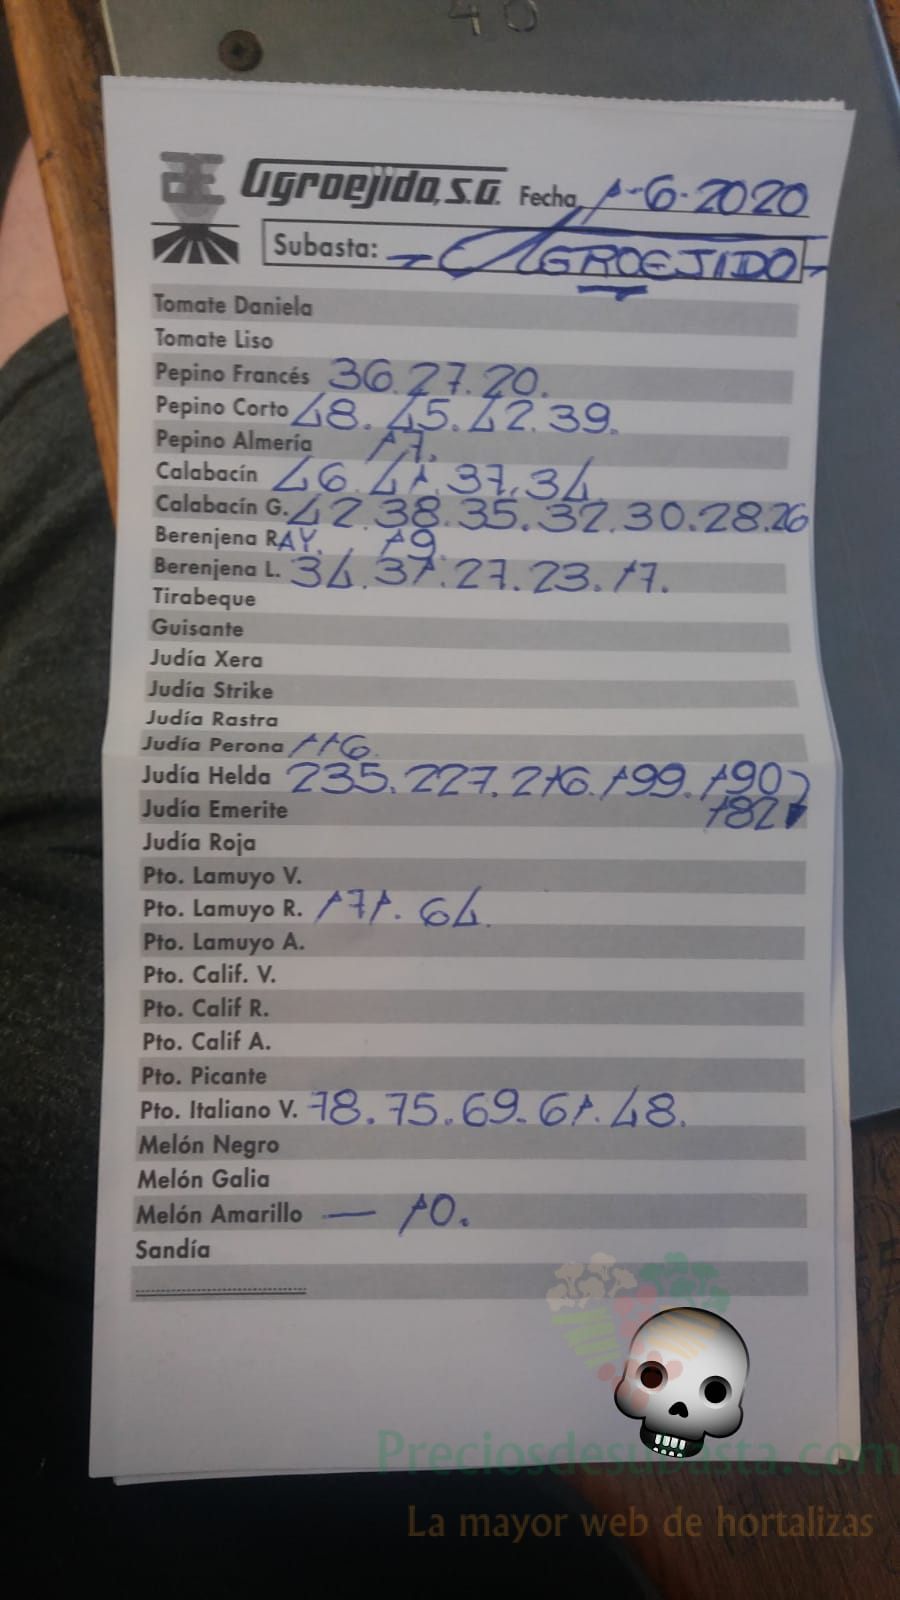 40
Agroejido, S.A. Fecha 1-6-2020
Subasta: - AGROEJIDO -
Tomate Daniela
Tomate Liso
Pepino Francés 36.27.20.
Pepino Corto 48.45.42.39.
Pepino Almería 17.
Calabacín 46.41.37.34
Calabacín G. 42.38.35.32.30.28.26
Berenjena RAY. 19
Berenjena L. 34.31.27.23.17.
Tirabeque
Guisante
Judía Xera
Judía Strike
Judía Rastra
Judía Perona 116
Judía Helda 235.227.216.199.190
Judía Emerite 182
Judía Roja
Pto. Lamuyo V.
Pto. Lamuyo R. 171. 64.
Pto. Lamuyo A.
Pto. Calif. V.
Pto. Calif R.
Pto. Calif A.
Pto. Picante
Pto. Italiano V. 78.75.69.61.48.
Melón Negro
Melón Galia
Melón Amarillo — 10.
Sandía
Preciosdesubasta.com
La mayor web de hortalizas